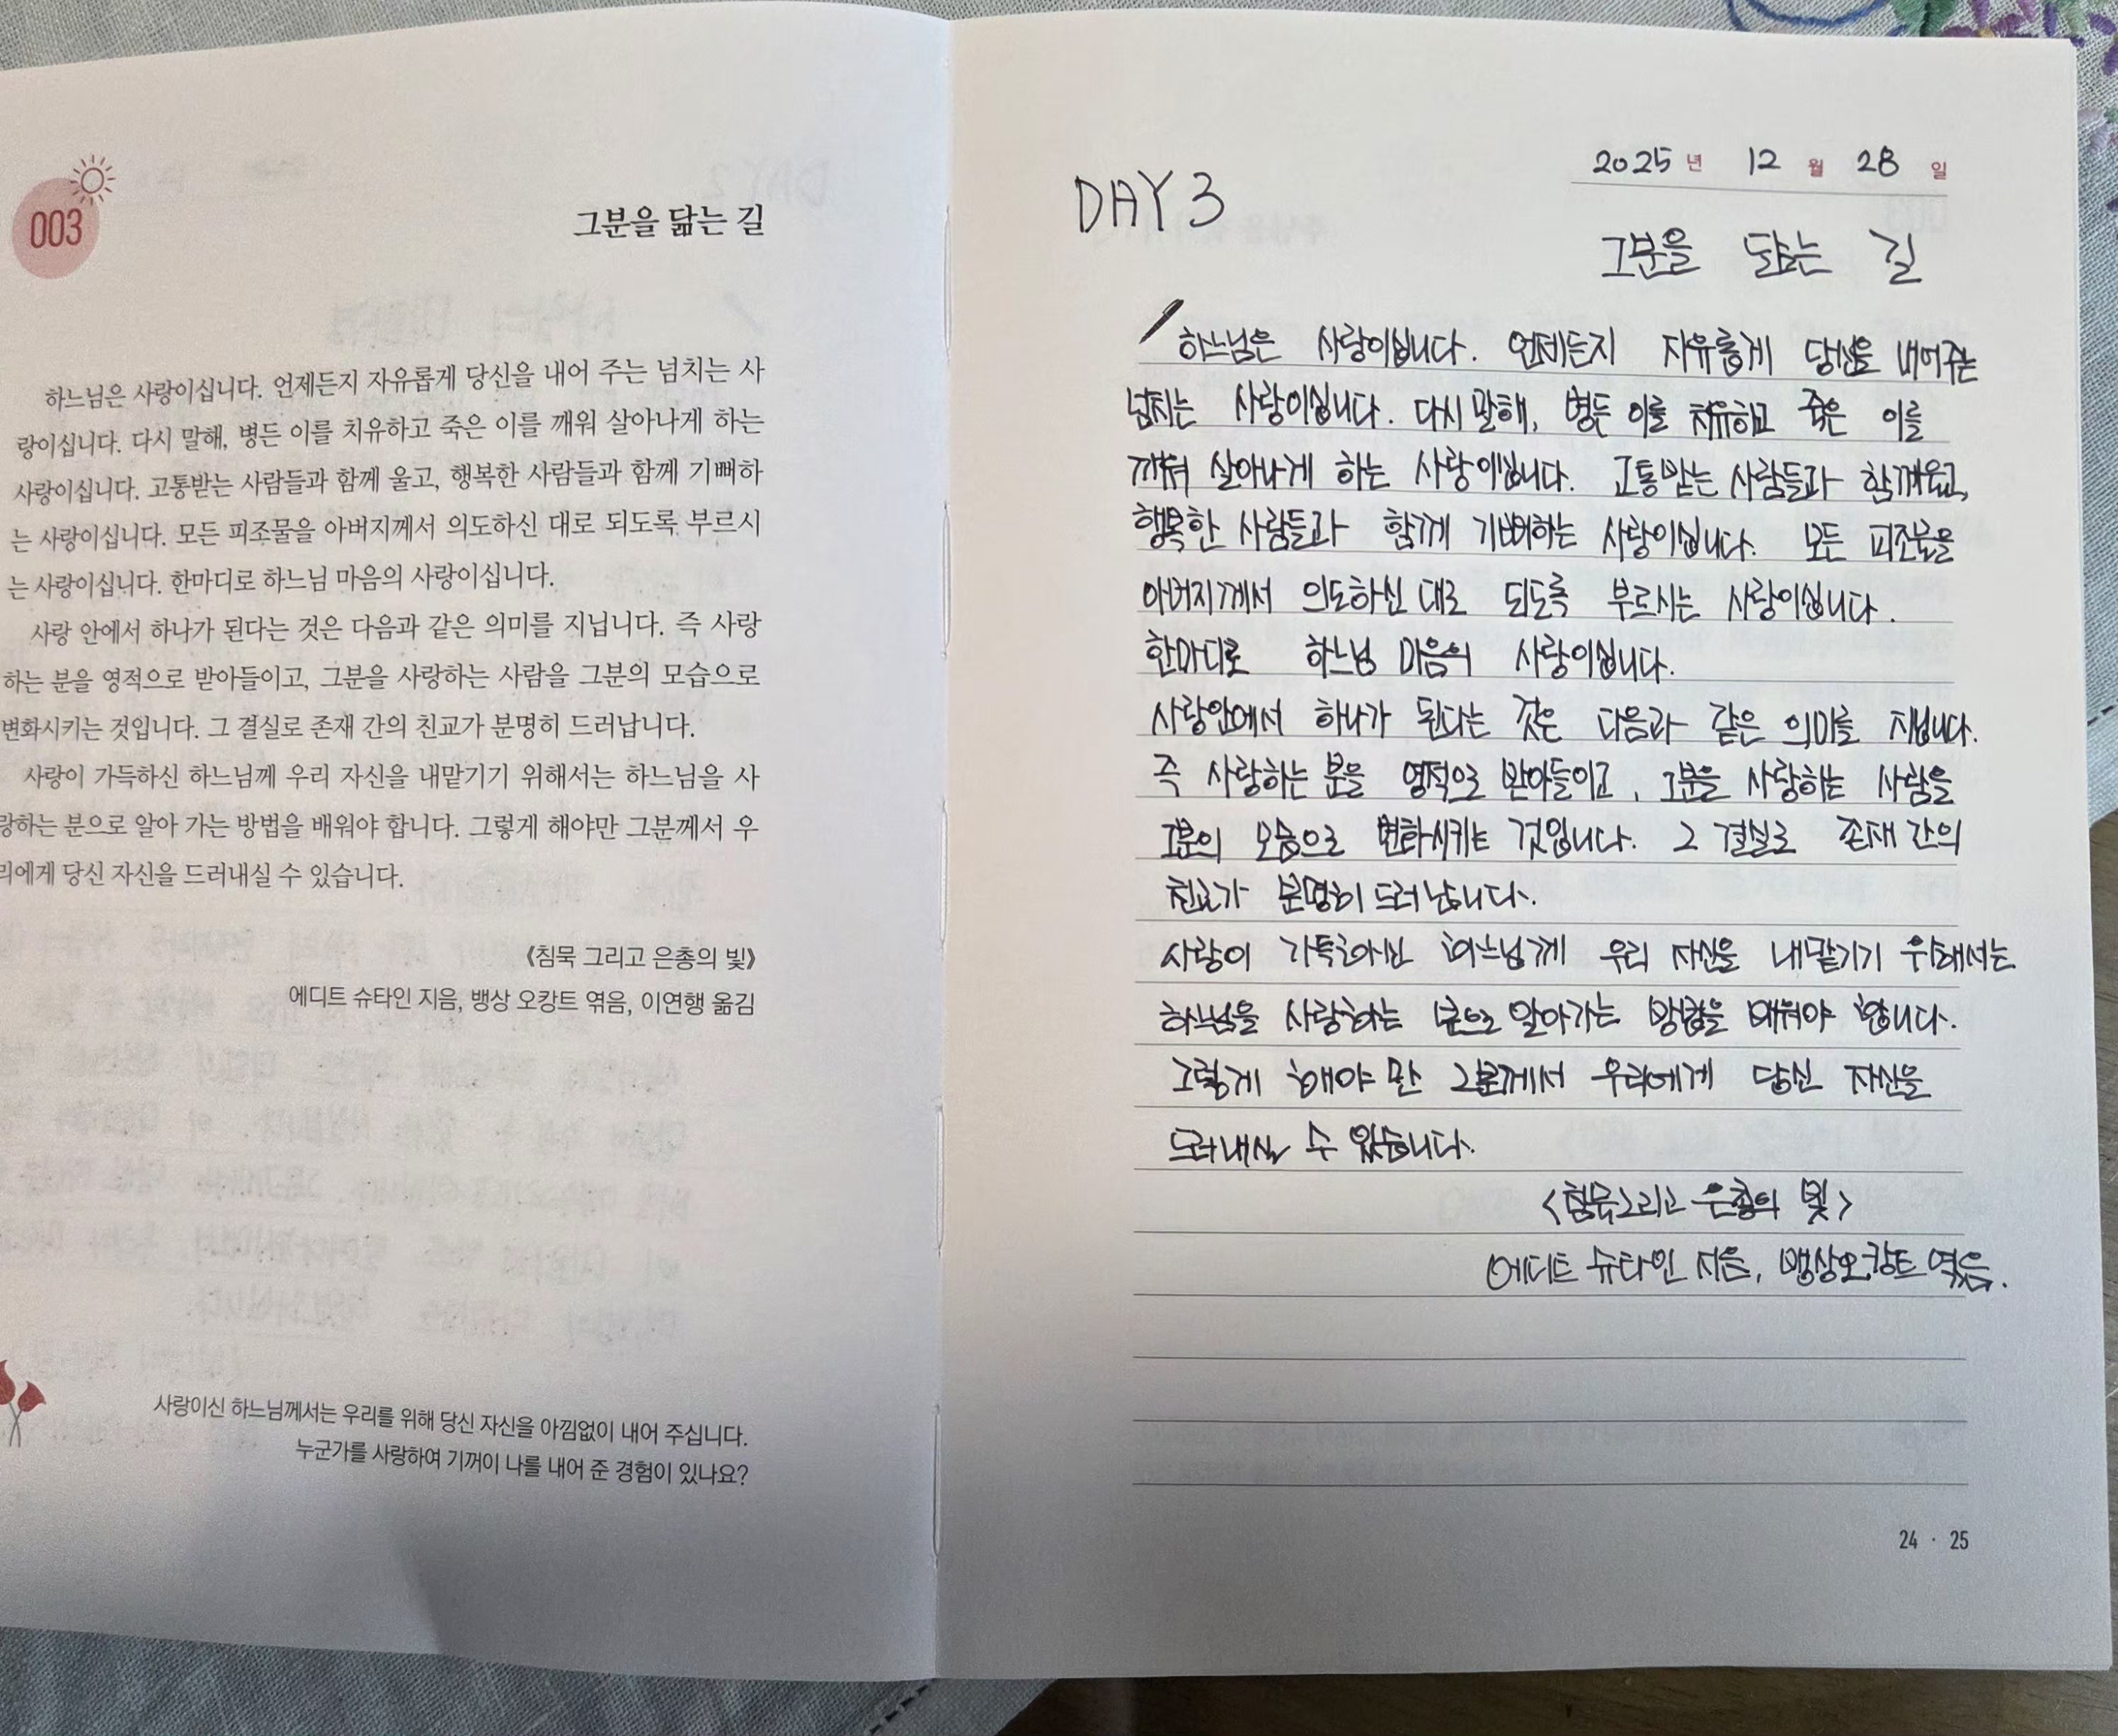 003
그분을 닮는 길
하느님은 사랑이십니다. 언제든지 자유롭게 당신을 내어 주는 넘치는 사
랑이십니다. 다시 말해, 병든 이를 치유하고 죽은 이를 깨워 살아나게 하는
사랑이십니다. 고통받는 사람들과 함께 울고, 행복한 사람들과 함께 기뻐하
는 사랑이십니다. 모든 피조물을 아버지께서 의도하신 대로 되도록 부르시
는 사랑이십니다. 한마디로 하느님 마음의 사랑이십니다.
사랑 안에서 하나가 된다는 것은 다음과 같은 의미를 지닙니다. 즉 사랑
하는 분을 영적으로 받아들이고, 그분을 사랑하는 사람을 그분의 모습으로
변화시키는 것입니다. 그 결실로 존재 간의 친교가 분명히 드러납니다.
사랑이 가득하신 하느님께 우리 자신을 내맡기기 위해서는 하느님을 사
랑하는 분으로 알아 가는 방법을 배워야 합니다. 그렇게 해야만 그분께서 우
리에게 당신 자신을 드러내실 수 있습니다.
《침묵 그리고 은총의 빛》
에디트 슈타인 지음, 뱅상 오캉트 엮음, 이연행 옮김
사랑이신 하느님께서는 우리를 위해 당신 자신을 아낌없이 내어 주십니다.
누군가를 사랑하여 기꺼이 나를 내어 준 경험이 있나요?
2025년 12월 28일
DAY 3
그분을 닮는 길
하느님은 사랑이십니다. 언제든지 자유롭게 당신을 내어주는
넘치는 사랑이십니다. 다시 말해, 병든 이를 치유하고 죽은 이를
깨워 살아나게 하는 사랑이십니다. 고통받는 사람들과 함께울고,
행복한 사람들과 함께 기뻐하는 사랑이십니다. 모든 피조물을
아버지께서 의도하신 대로 되도록 부르시는 사랑이십니다.
한마디로 하느님 마음의 사랑이십니다.
사랑안에서 하나가 된다는 것은 다음과 같은 의미를 지닙니다.
즉 사랑하는 분을 영적으로 받아들이고, 그분을 사랑하는 사람을
그분의 모습으로 변화시키는 것입니다. 그 결실로 존재 간의
친교가 분명히 드러납니다.
사랑이 가득하신 하느님께 우리 자신을 내맡기기 위해서는
하느님을 사랑하는 분으로 알아가는 방법을 배워야 합니다.
그렇게 해야 만 그분께서 우리에게 당신 자신을
드러내실 수 있습니다.
<침묵그리고 은총의 빛>
에디트 슈타인 지음, 뱅상오캉트 엮음.
24 · 25